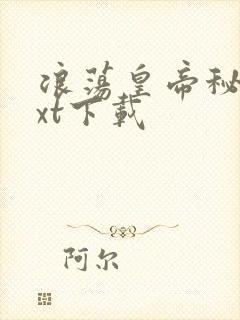 浪荡皇帝秘
xt下载
阿尔